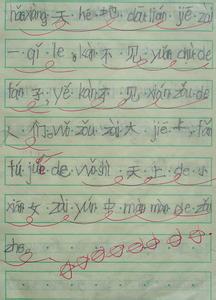 hǎoxiàng 天 hé 地 dōu lián jiē zài
一 qǐ le, kàn 不 见 yuǎn chù de
fáng 子, yě kàn 不 见 xiǎn zǒu de
人 们, wǒ zǒu zài 大 jiē 上, fǎn
fú jué de wǒ shì 天 上 de 小
xiān 女 zài yún 中 màn màn de zǒu
zhe。